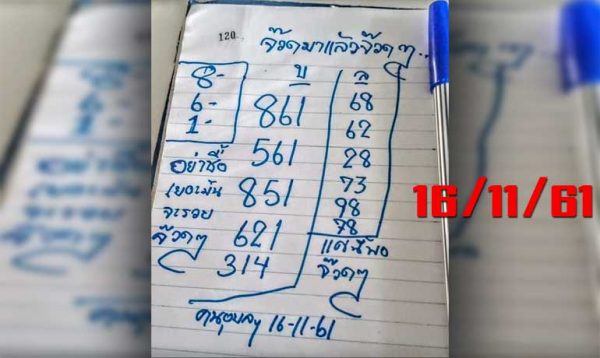 120
จ๊วดมาแล้วจ๊วดๆ..
บ ล
8-
6-
1-
861
561
851
621
314
68
62
28
73
98
78
อย่าซื้อ
เยอะมัน
จะรวย
จ๊วดๆ
แค่นี้พอ
จ๊วดๆ
16-11-61
16/11/61